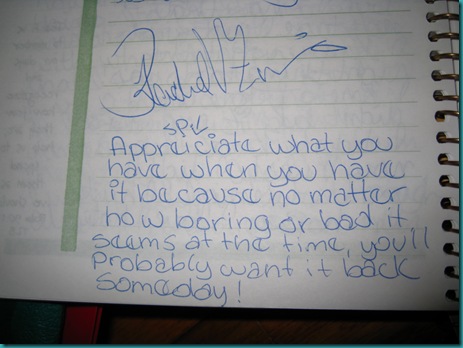 sp✓
Appreiciate what you
have when you have
it because no matter
how boring or bad it
seems at the time, you'll
probably want it back
someday!